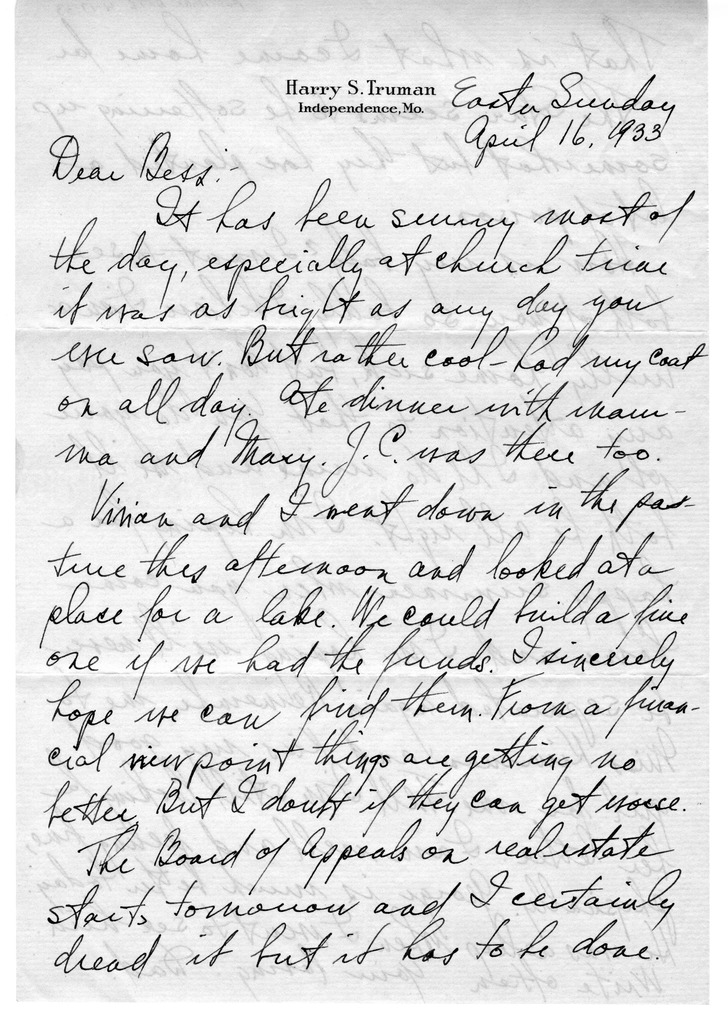 Harry S. Truman
Independence, Mo.
Easter Sunday
April 16, 1933
Dear Bess:-
It has been sunny most of
the day, especially at church time
it was as bright as any day you
ever saw. But rather cool - had my coat
on all day. Ate dinner with mam-
ma and Mary. J.C. was there too.
Vivian and I went down in the pas-
ture this afternoon and looked at a
place for a lake. We could build a fine
one if we had the funds. I sincerely
hope we can find them. From a finan-
cial viewpoint things are getting no
better. But I doubt if they can get worse.
The Board of Appeals on real estate
starts tomorrow and I certainly
dread it but it has to be done.